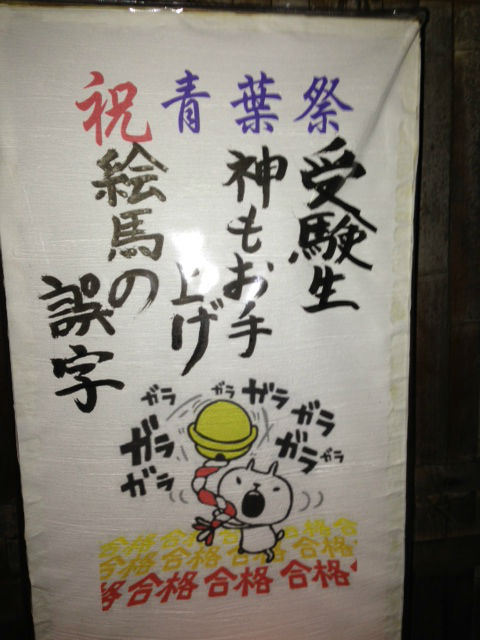 祝 青葉祭
受験生
神もお手
上げ
絵馬の
誤字
ガラ ガラ ガラ
ガラ ガラ
ガラ ガラ ガラ
合格合格合格合格
合格合格合格合格
格合格合格合格